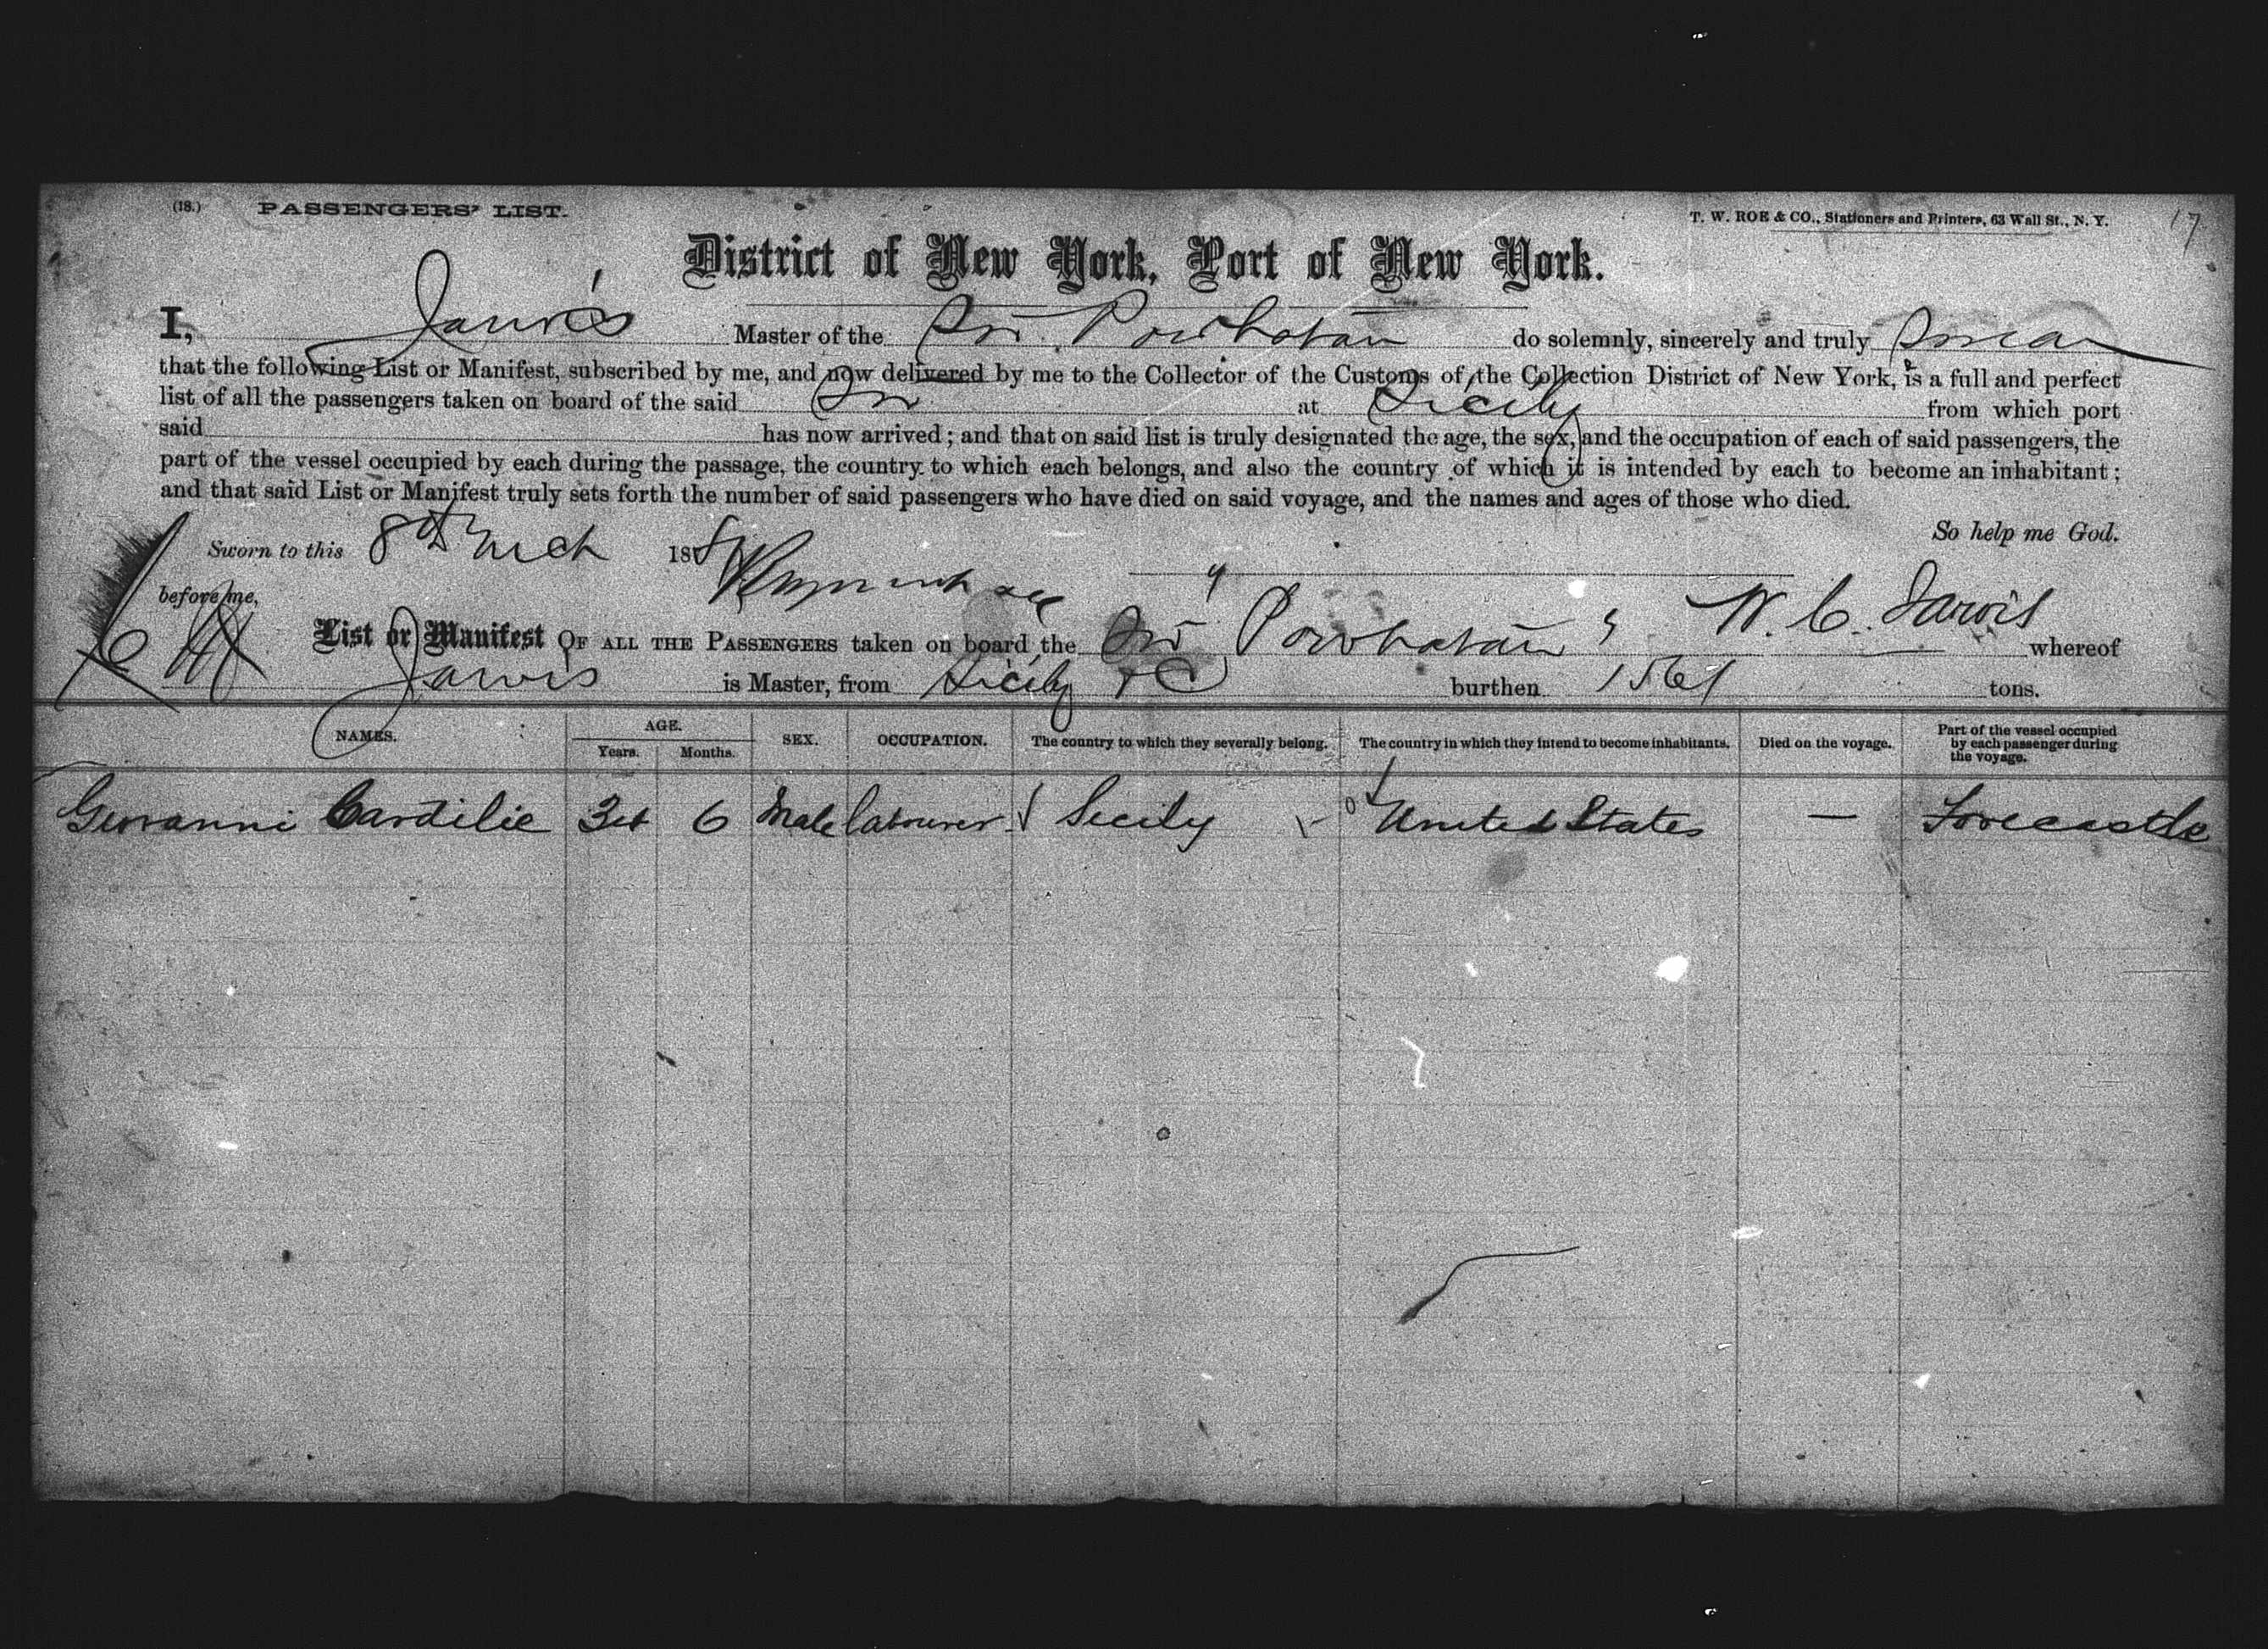 (18.) PASSENGERS' LIST. T. W. ROE & CO., Stationers and Printers, 63 Wall St., N. Y. 17
District of New York, Port of New York.
I, Jarvis Master of the Str Powhatan do solemnly, sincerely and truly swear
that the following List or Manifest, subscribed by me, and now delivered by me to the Collector of the Customs of the Collection District of New York, is a full and perfect
list of all the passengers taken on board of the said Str at Sicily from which port
said has now arrived; and that on said list is truly designated the age, the sex, and the occupation of each of said passengers, the
part of the vessel occupied by each during the passage, the country to which each belongs, and also the country of which it is intended by each to become an inhabitant;
and that said List or Manifest truly sets forth the number of said passengers who have died on said voyage, and the names and ages of those who died.
So help me God.
Sworn to this 8th Mch 188
before me,
W. C. Jarvis
List or Manifest OF ALL THE PASSENGERS taken on board the Str Powhatan whereof
Jarvis is Master, from Sicily burthen 1561 tons.
NAMES. AGE. Years. Months. SEX. OCCUPATION. The country to which they severally belong. The country in which they intend to become inhabitants. Died on the voyage. Part of the vessel occupied by each passenger during the voyage.
Giovanni Cardilie 6 Male labourer Sicily United States — Forecastle